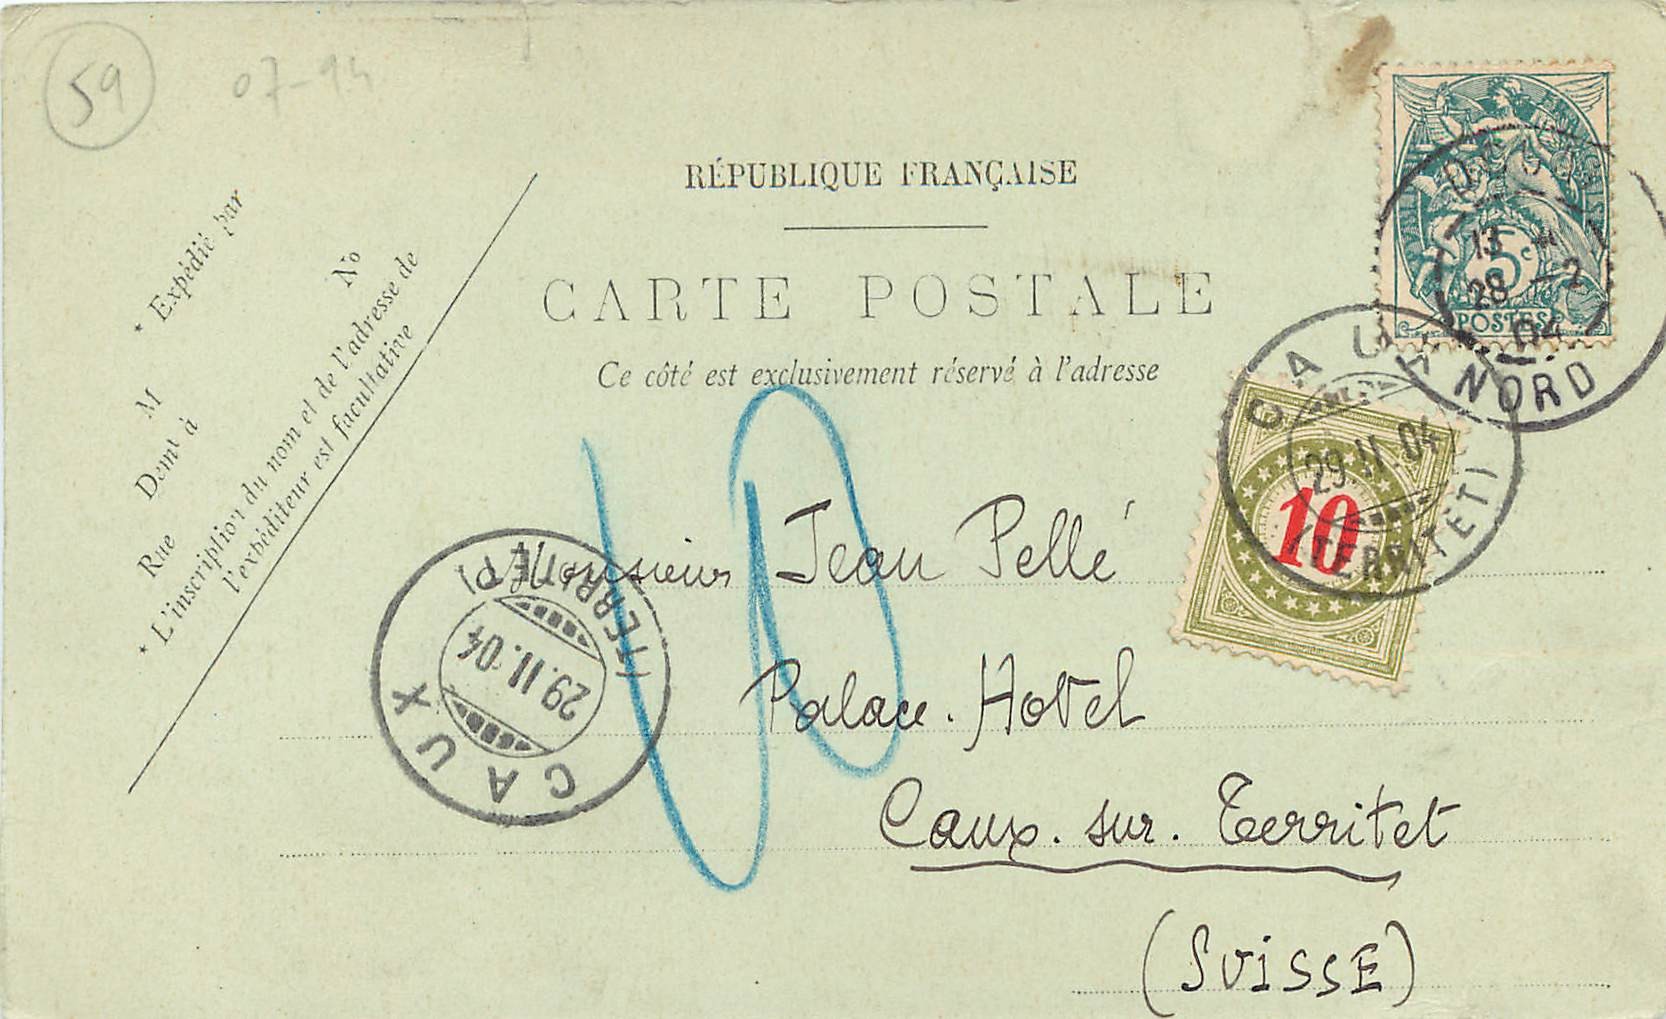 59
07-94
RÉPUBLIQUE FRANÇAISE
CARTE POSTALE
Ce côté est exclusivement réservé à l'adresse
* Expédié par
M
Demt à
Rue
No
* L'inscription du nom et de l'adresse de
l'expéditeur est facultative
5c
POSTES
13
28 -2
04
NORD
CAUX
29.II.04
(TERRITET)
10
CAUX
29.II.04
(TERRITET)
10
Monsieur Jean Pellé
Palace-Hotel
Caux-sur-Territet
(SUISSE)